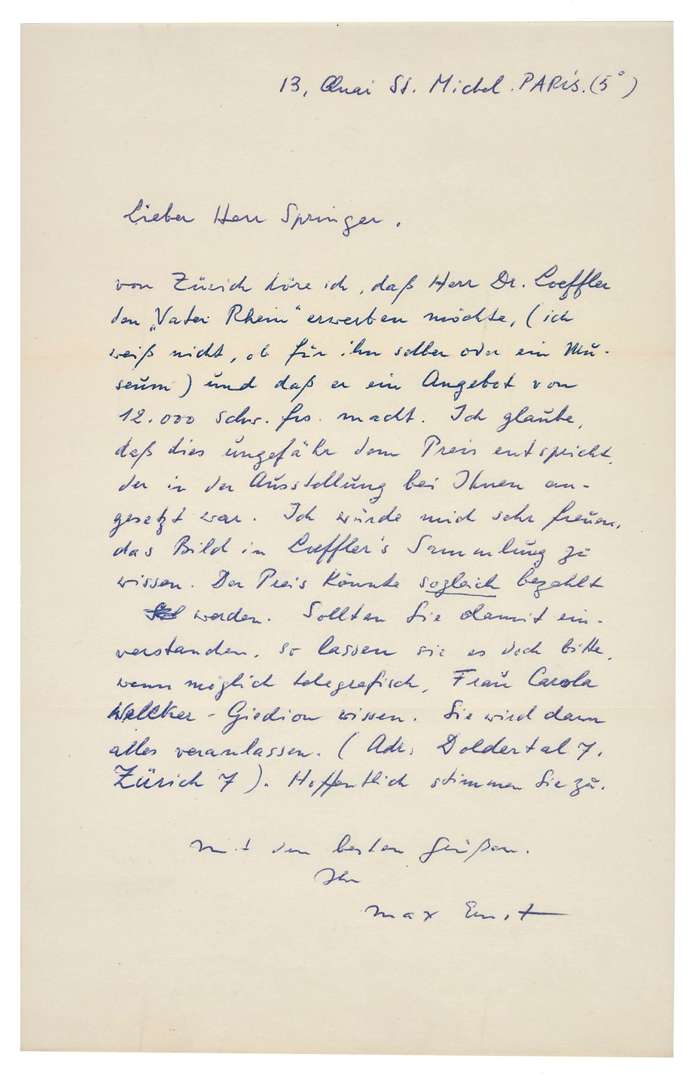 13, Quai St. Michel. PARIS. (5°)
Lieber Herr Springer,
von Zürich höre ich, daß Herr Dr. Loeffler
den „Vater Rhein" erwerben möchte, (ich
weiß nicht, ob für ihn selber oder ein Mu-
seum) und daß er ein Angebot von
12.000 schw. frs. macht. Ich glaube,
daß dies ungefähr dem Preis entspricht,
der in der Ausstellung bei Ihnen an-
gesetzt war. Ich würde mich sehr freuen,
das Bild in Loeffler's Sammlung zu
wissen. Der Preis könnte sogleich bezahlt
werden. Sollten Sie damit ein-
verstanden, so lassen sie es doch bitte,
wenn möglich telegrafisch, Frau Carola
Welcker-Giedion wissen. Sie wird dann
alles veranlassen. (Adr. Doldertal 7,
Zürich 7). Hoffentlich stimmen Sie zu.
Mit den besten Grüßen.
Ihr
max Ernst